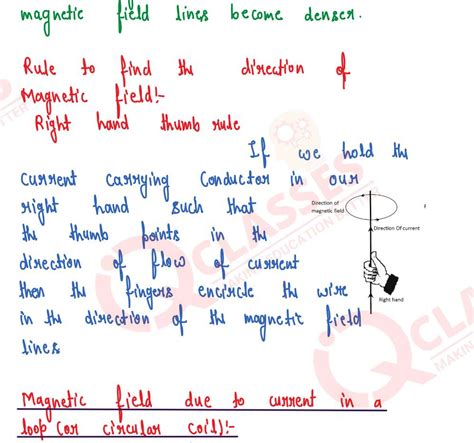 magnetic field lines become denser.
Rule to find the direction of
Magnetic field!-
Right hand thumb rule
If we hold the
current carrying conductor in our
right hand such that
the thumb points in the
direction of flow of current
then the fingers encircle the wire
in the direction of the magnetic field
lines
Direction of
magnetic field
I
Direction Of current
Right hand
Magnetic field due to current in a
loop (or circular coil)!-
CLASSES